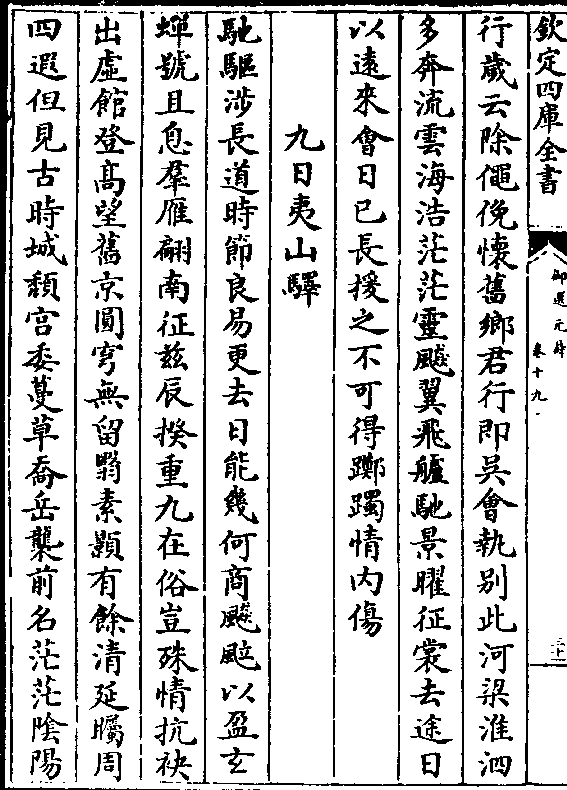 欽定四庫全書
御選元詩
卷十九
三十二
行歲云除僶俛懷舊鄉君行即吳會執别此河梁淮泗
多奔流雲海浩茫茫靈飈翼飛艫馳景曜征裳去途日
以遠來會日已長援之不可得躑躅情内傷
九日夷山驛
馳驅涉長道時節良易更去日能幾何商飈颭以盈玄
蟬號且息羣雁翩南征兹辰揆重九在俗豈殊情抗袂
出虛館登高望舊京圓穹無留翳素顥有餘清延矚周
四遐但見古時城頹宫委蔓草喬岳襲前名茫茫陰陽